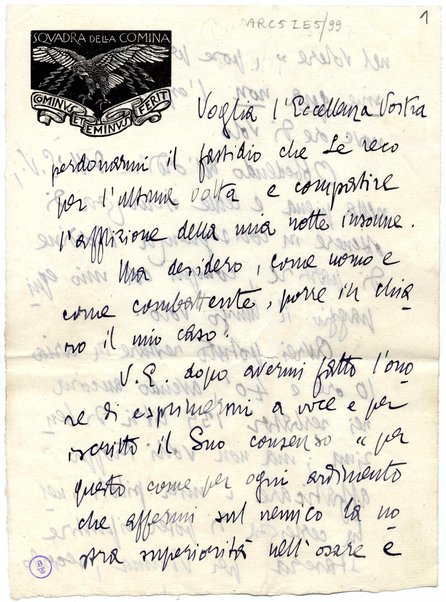 ARC5 I E5/99
1
SQVADRA DELLA COMINA
COMINVS ET EMINVS FERIT
Voglia l'Eccellenza Vostra
perdonarmi il fastidio che Le reco
per l'ultima volta e compatire
l'afflizione della mia notte insonne.
Ma desidero, come uomo e
come combattente, porre in chia
ro il mio caso.
V. E. dopo avermi fatto l'ono
re di esprimermi a voce e per
iscritto il Suo consenso "per
questo come per ogni ardimento
che affermi sul nemico la no
stra superiorità nell'osare e